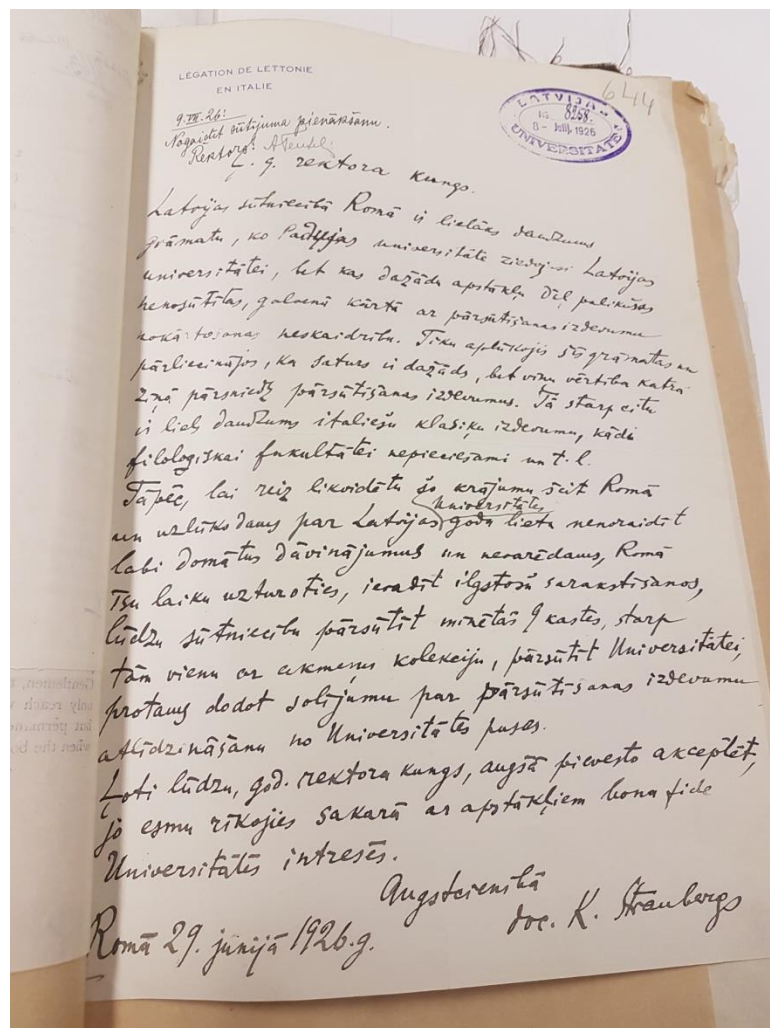 LÉGATION DE LETTONIE
EN ITALIE
644
LATVIJAS
8258.
8 - JūlIJ. 1926
UNIVERSITATE
9.VII.26:
Nogaidīt sūtījuma pienākšanu.
Rektors:
Ļ. g. rektora kungs.
Latvijas sūtniecībā Romā ir lielāks daudzums
grāmatu, ko Padujas universitāte ziedojusi Latvijas
universitātei, bet kas dažādu apstākļu dēļ palikušas
nenosūtītas, galvenā kārtā ar pārsūtīšanas izdevumu
nokārtošanas neskaidrību. Tiku aplūkojis šīs grāmatas un
pārliecinājos, ka saturs ir dažāds, bet viņu vērtība katrā
ziņā pārsniedz pārsūtīšanas izdevumus. Tā starp citu
ir liels daudzums italiešu klasiķu izdevumu, kādi
filoloģiskai fakultātei nepieciešami un t. l.
Tāpēc, lai reiz likvidētu šo krājumu šeit Romā
un uzlūkodams par Latvijas Universitātes goda lietu nenoraidīt
labi domātus dāvinājumus un nevarēdams, Romā
īsu laiku uzturoties, ievadīt ilgstošu sarakstīšanos,
lūdzu sūtniecību pārsūtīt minētās 9 kastes, starp
tām vienu ar akmeņus kolekciju, pārsūtīt Universitātei,
protams dodot solījumu par pārsūtīšanas izdevumu
atlīdzināšanu no Universitātes puses.
Ļoti lūdzu, god. rektora kungs, augšā pievesto akceptēt,
jo esmu rīkojies sakarā ar apstākļiem bona fide
Universitātes intresēs.
Augstcienībā
doc. K. Straubergs
Romā 29. jūnijā 1926.g.